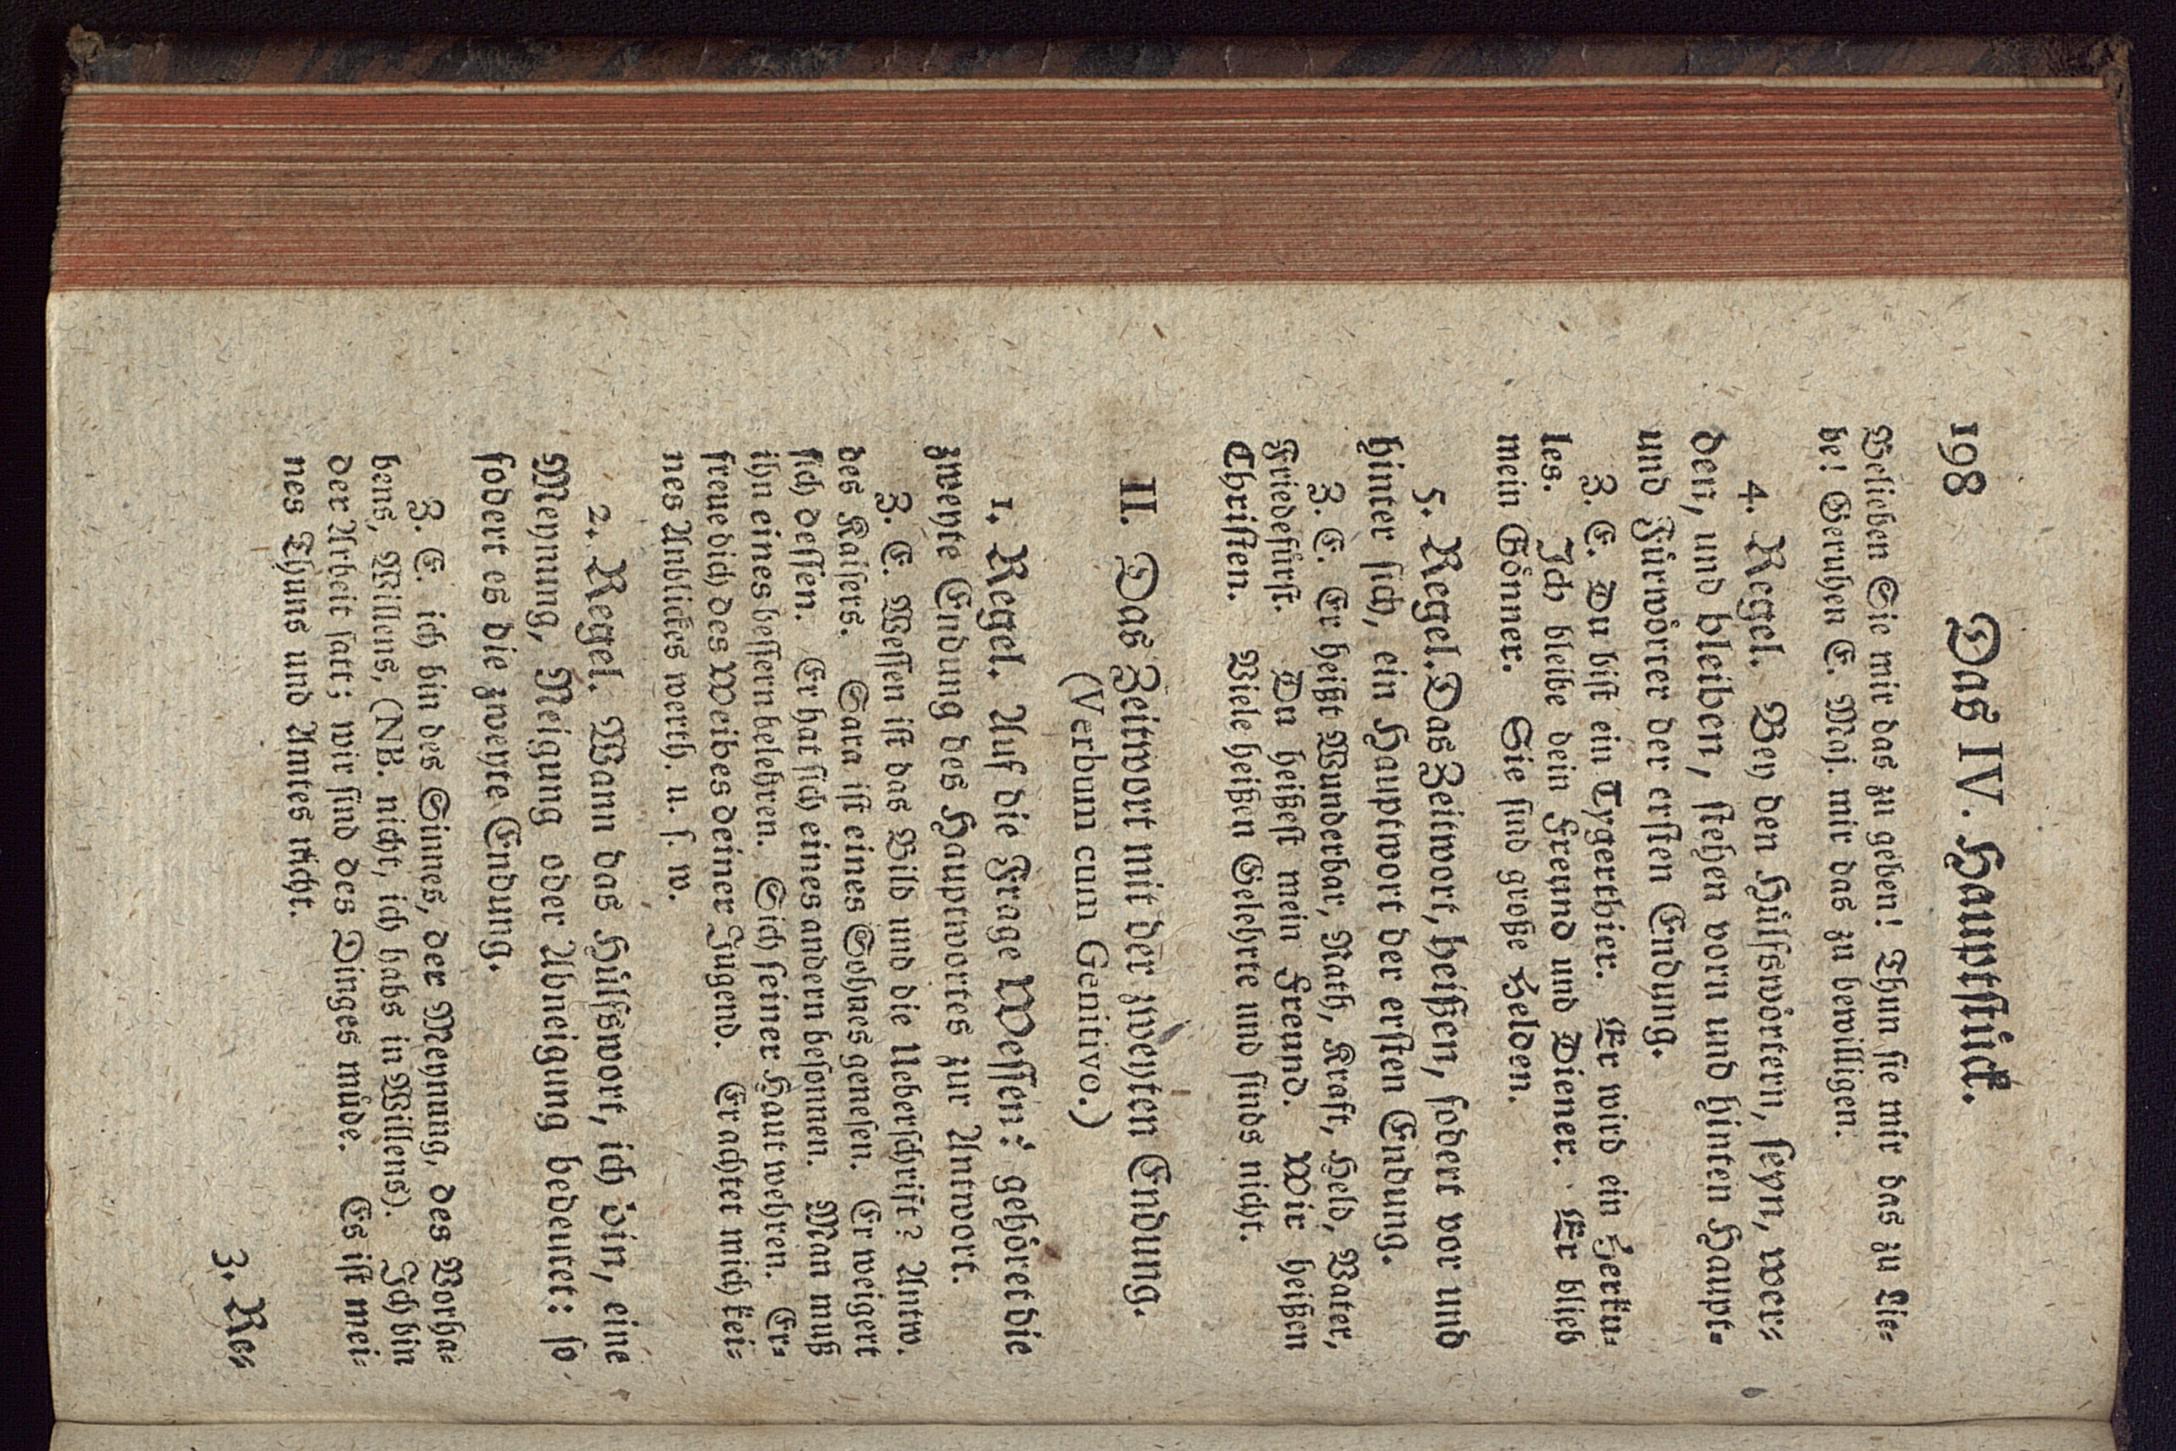 198 Das IV. Hauptstück.
Belieben Sie mir das zu geben! Thun sie mir das zu Lie-
be! Geruhen E. Maj. mir das zu bewilligen.
4. Regel. Bey den Hülfswörtern, seyn, wer-
den, und bleiben, stehen vorn und hinten Haupt-
und Fürwörter der ersten Endung.
Z. E. Du bist ein Tygerthier. Er wird ein Herku-
les. Ich bleibe dein Freund und Diener. Er blieb
mein Gönner. Sie sind große Helden.
5. Regel. Das Zeitwort, heißen, fodert vor und
hinter sich, ein Hauptwort der ersten Endung.
Z. E. Er heißt Wunderbar, Rath, Kraft, Held, Vater,
Friedefürst. Du heißest mein Freund. Wir heißen
Christen. Viele heißen Gelehrte und sinds nicht.
II. Das Zeitwort mit der zweyten Endung.
(Verbum cum Genitivo.)
1. Regel. Auf die Frage Wessen: gehöret die
zweyte Endung des Hauptwortes zur Antwort.
Z. E. Wessen ist das Bild und die Ueberschrift? Antw.
des Kaisers. Sara ist eines Sohnes genesen. Er weigert
sich dessen. Er hat sich eines andern besonnen. Man muß
ihn eines bessern belehren. Sich seiner Haut wehren. Er-
freue dich des Weibes deiner Jugend. Er achtet mich kei-
nes Anblickes werth. u. s. w.
2. Regel. Wann das Hülfswort, ich bin, eine
Meynung, Neigung oder Abneigung bedeutet: so
fodert es die zweyte Endung.
Z. E. ich bin des Sinnes, der Meynung, des Vorha-
bens, Willens, (NB. nicht, ich habs in Willens). Ich bin
der Arbeit satt; wir sind des Dinges müde. Es ist mei-
nes Thuns und Amtes nicht.
3. Re-